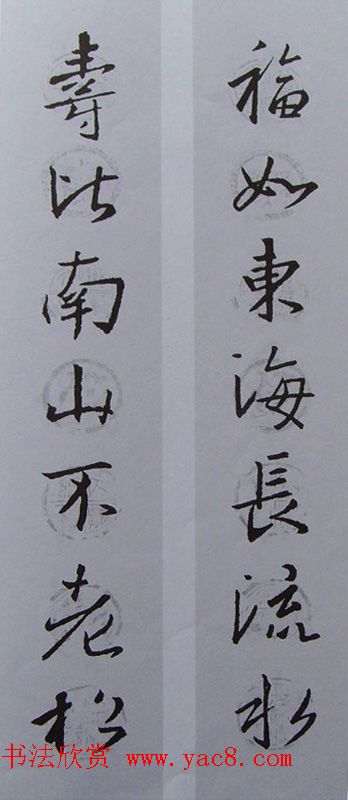 福如東海長流水
壽比南山不老松
书法欣赏 www.yac8.com